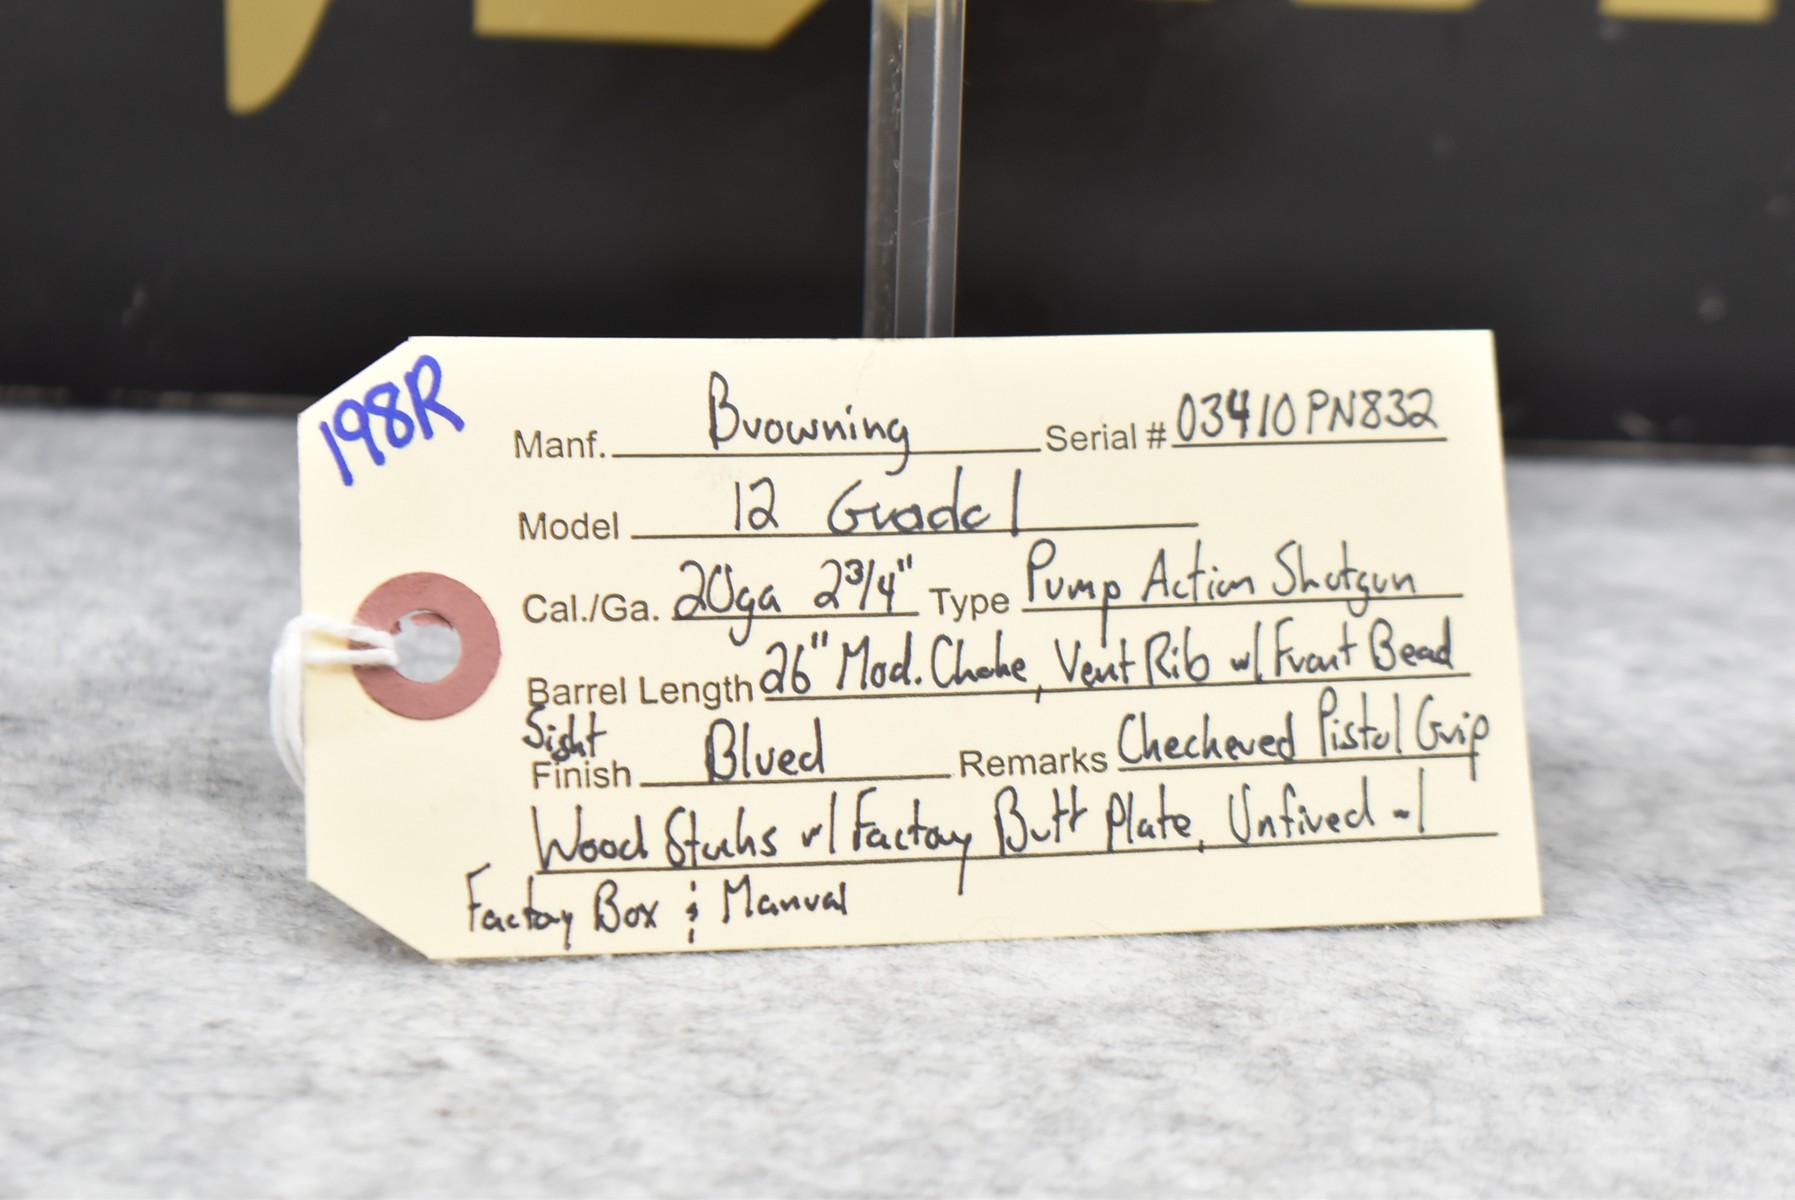 198R
Manf. Browning Serial # 03410PN832
Model 12 Grade 1
Cal./Ga. 20ga 2 3/4" Type Pump Action Shotgun
Barrel Length 26" Mod. Choke, Vent Rib w/ Front Bead
Sight
Finish Blued Remarks Checkered Pistol Grip
Wood Stocks w/ Factory Butt Plate, Unfired - 1
Factory Box & Manual